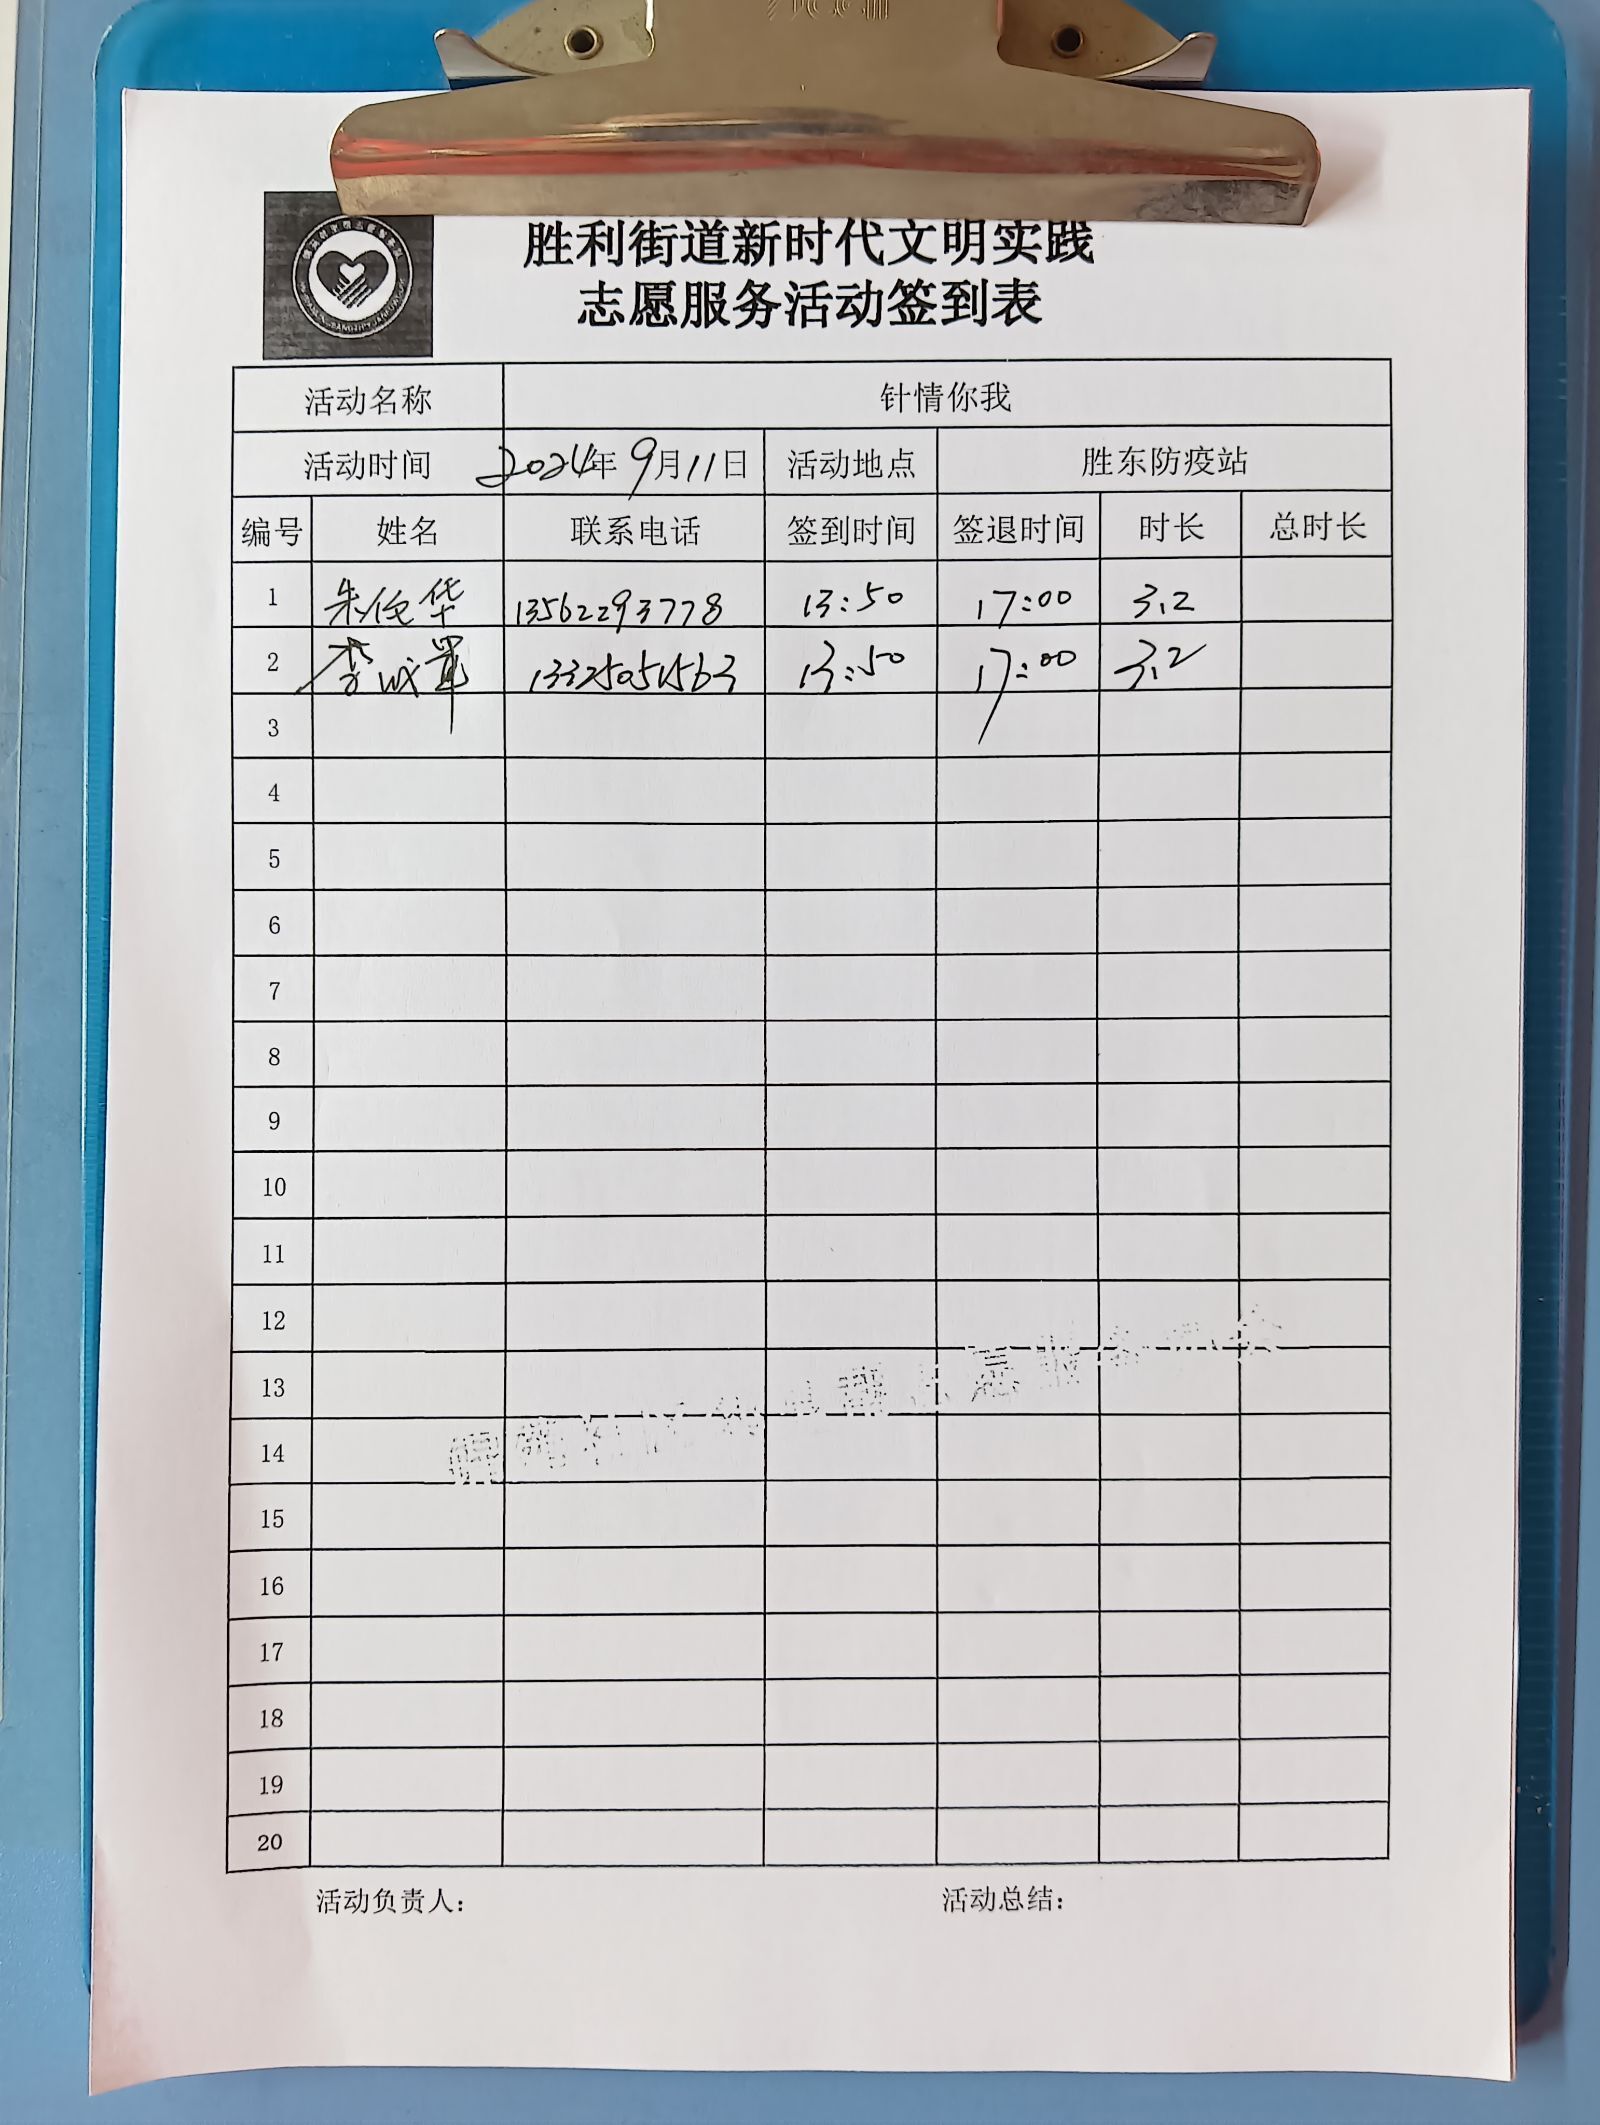 胜利街道新时代文明实践
志愿服务活动签到表
活动名称 针情你我
活动时间 2024年9月11日 活动地点 胜东防疫站
编号 姓名 联系电话 签到时间 签退时间 时长 总时长
1 朱伦华 13562293778 13:50 17:00 3.2
2 李成 13325051563 13:50 17:00 3.2
3
4
5
6
7
8
9
10
11
12
13
14
15
16
17
18
19
20
活动负责人： 活动总结：